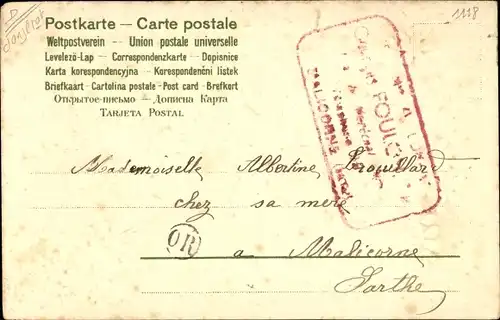 1118
Postkarte — Carte postale
Weltpostverein — Union postale universelle
Levelezö-Lap — Correspondenzkarte — Dopisnice
Karta korespondencyjna — Korespondenčni listek
Briefkaart - Cartolina postale - Post card - Brefkort
Открытое-письмо — Дописна Карта
TARJETA POSTAL
FOULC
MALICORNE
Mademoiselle Albertine Trouillard
chez sa mère
OR
a Malicorne
Sarthe